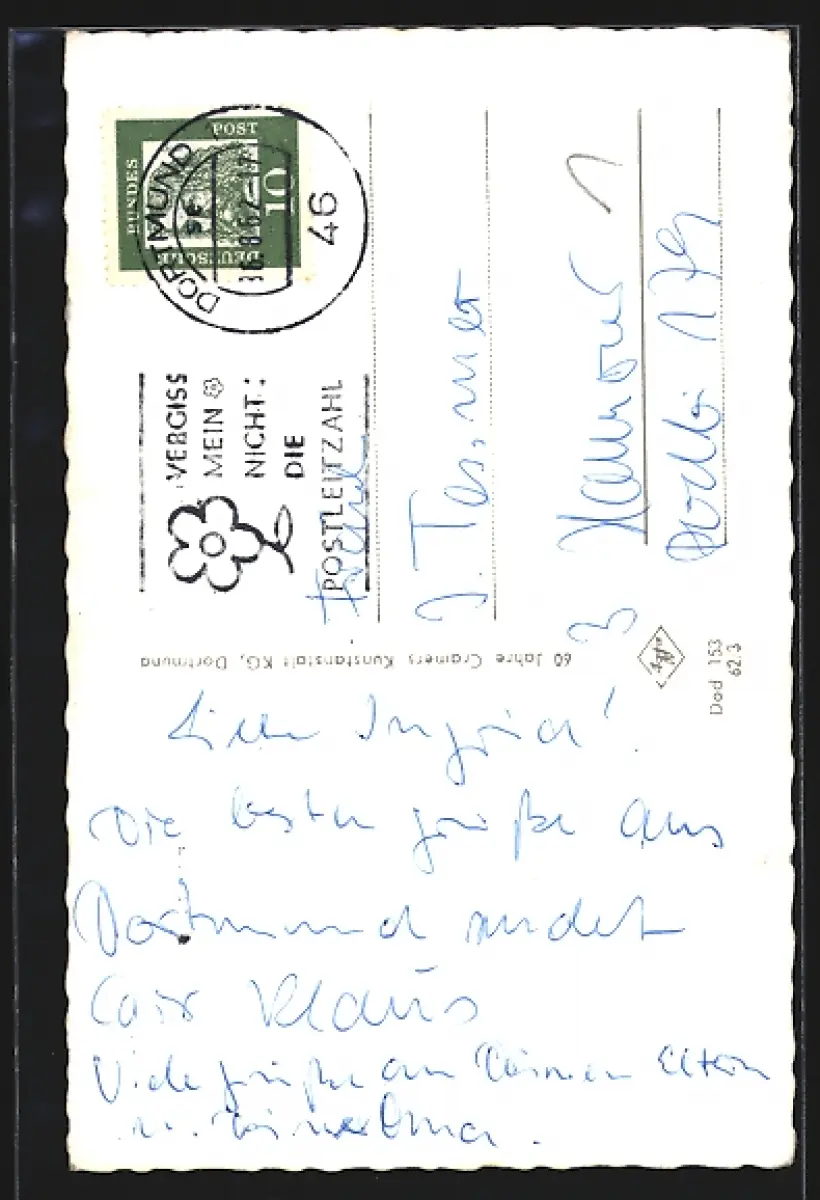 DEUTSCHE
BUNDES
POST
10
DORTMUND
46
VERGISS
MEIN
NICHT:
DIE
POSTLEITZAHL
J. Tessmer
3 Hannover 1
60 Jahre Cramers Kunstanstalt KG, Dortmund
Agfa
Dod 153
62.3
Liebe Ingrid!
Die besten Grüße aus
Dortmund sendet
Klaus
Viele Grüße an Deinen Eltern
u. Deiner Oma.